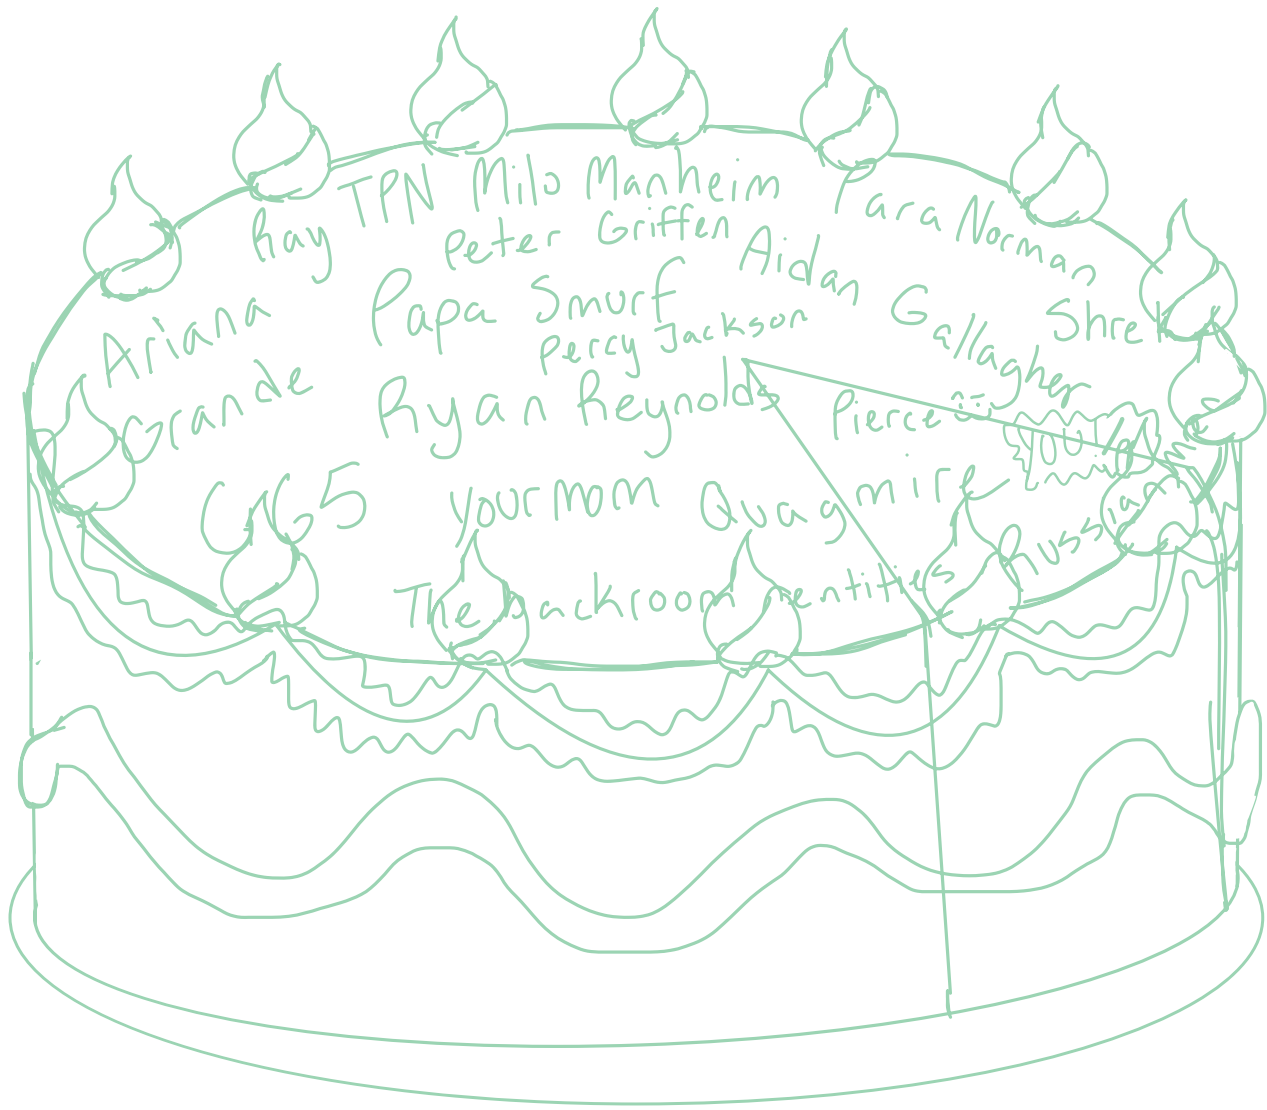 TPN Milo Manheim
ParaNorman
Ray
Peter Griffen
Aidan Gallagher
Papa Smurf
Shrek
Ariana Grande
Percy Jackson
Ryan Reynolds
Pierce
your mom
Quagmire
Russian
The backroom entities